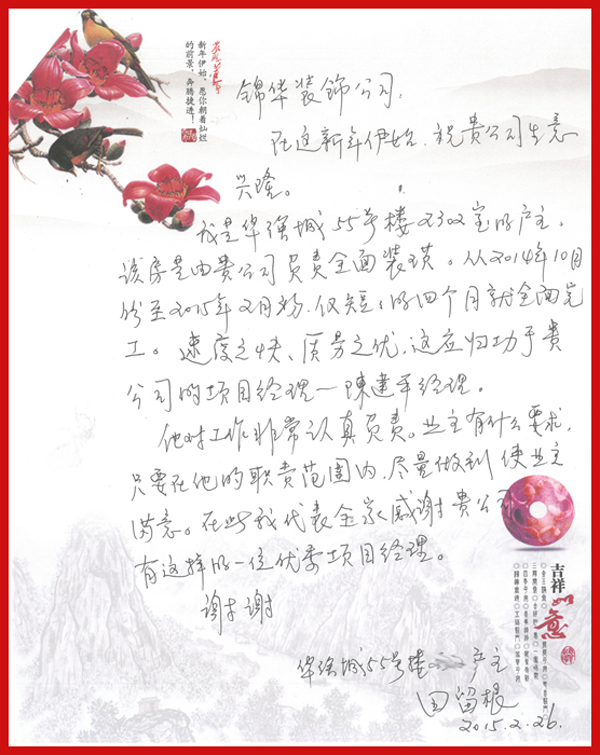 新年伊始,愿你朝着灿烂
的前景,奔腾捷进!
锦华装饰公司.
在这新年伊始.祝贵公司生意
兴隆。
我是华强城55号楼2302室的产主.
该房是由贵公司负责全面装璜。从2014年10月
份至2015年2月初.仅短短的四个月就全面完
工。速度之快、质量之优.这应归功于贵
公司的项目经理—陳建平经理。
他对工作非常认真负责。业主有什么要求.
只要在他的职责范围内.尽量做到使业主
满意。在此我代表全家感谢贵公司
有这样的一位优秀项目经理。
谢谢
华强城55号楼 产主
田留根
2015.2.26.
吉祥
如意